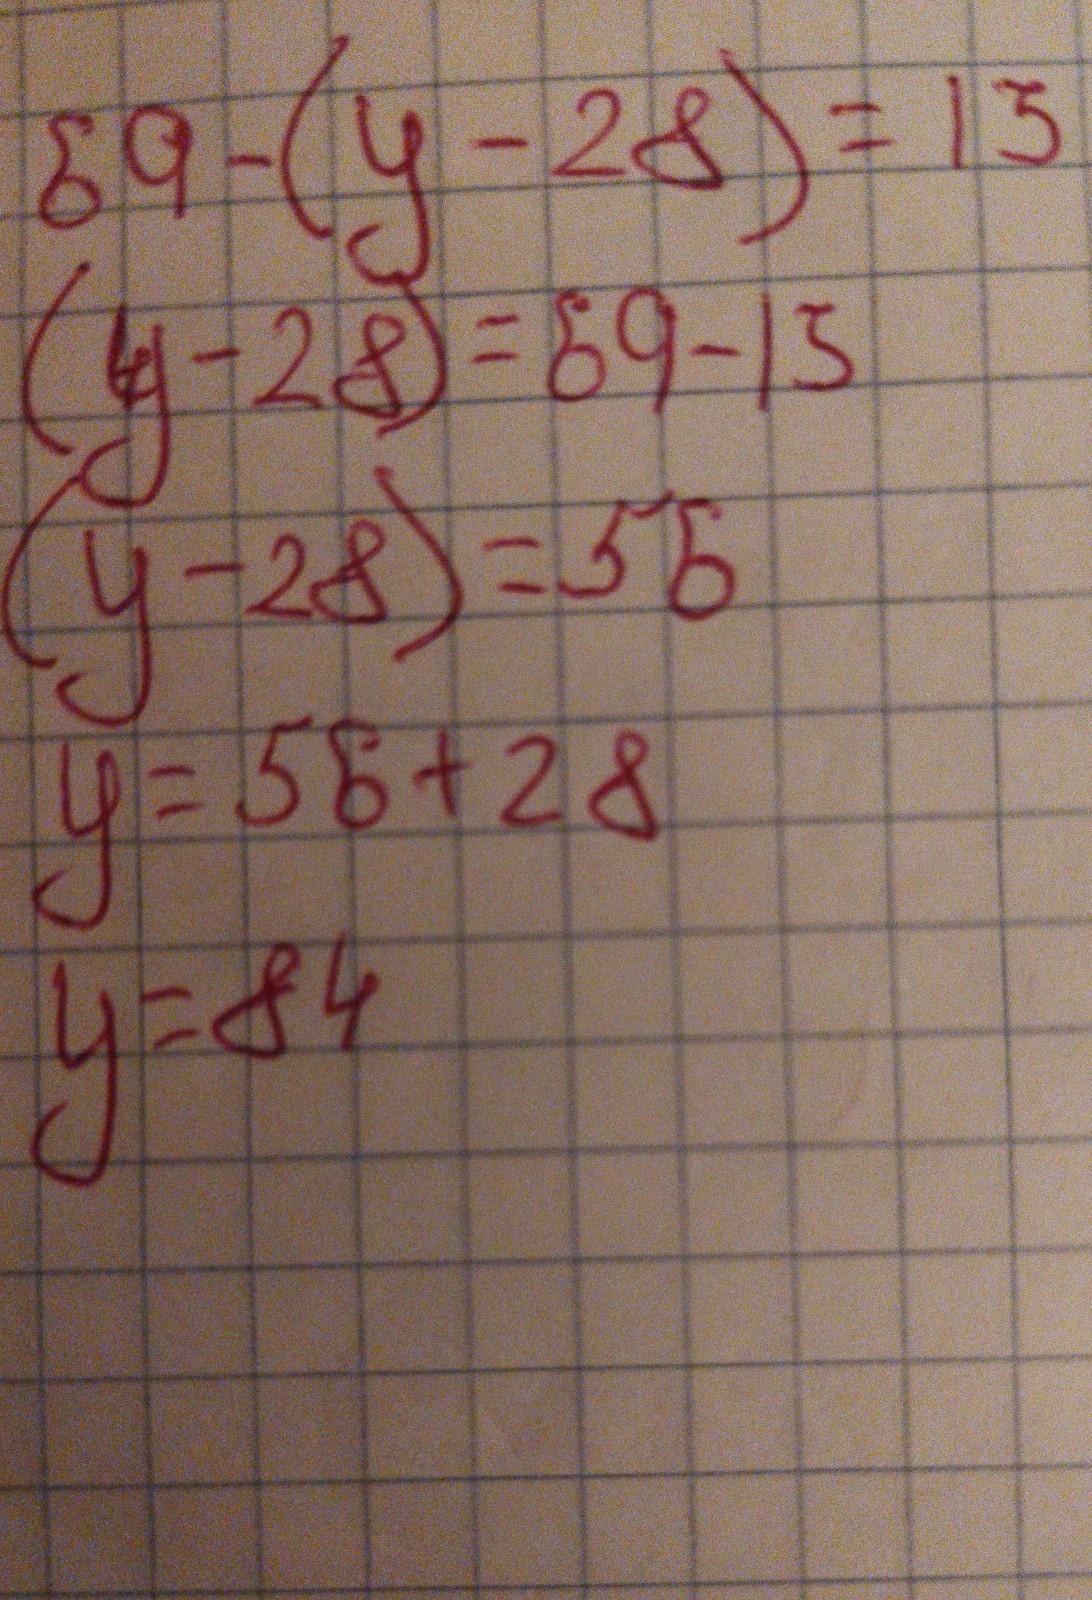 69-(y-28)=13
(y-28)=69-13
(y-28)=56
y=56+28
y=84